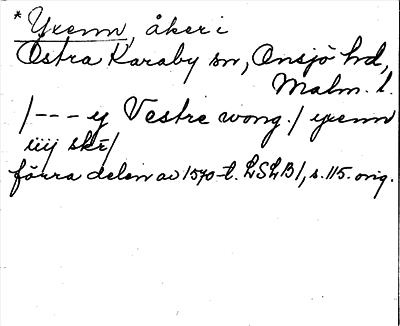 * Yrenn, åker i
Östra Karaby sn, Onsjö hd,
Malm. l.
/--- y Vestre wong./ yrenn
iiij skr/
förra delen av 1570-t. LSLB1, s. 115. orig.